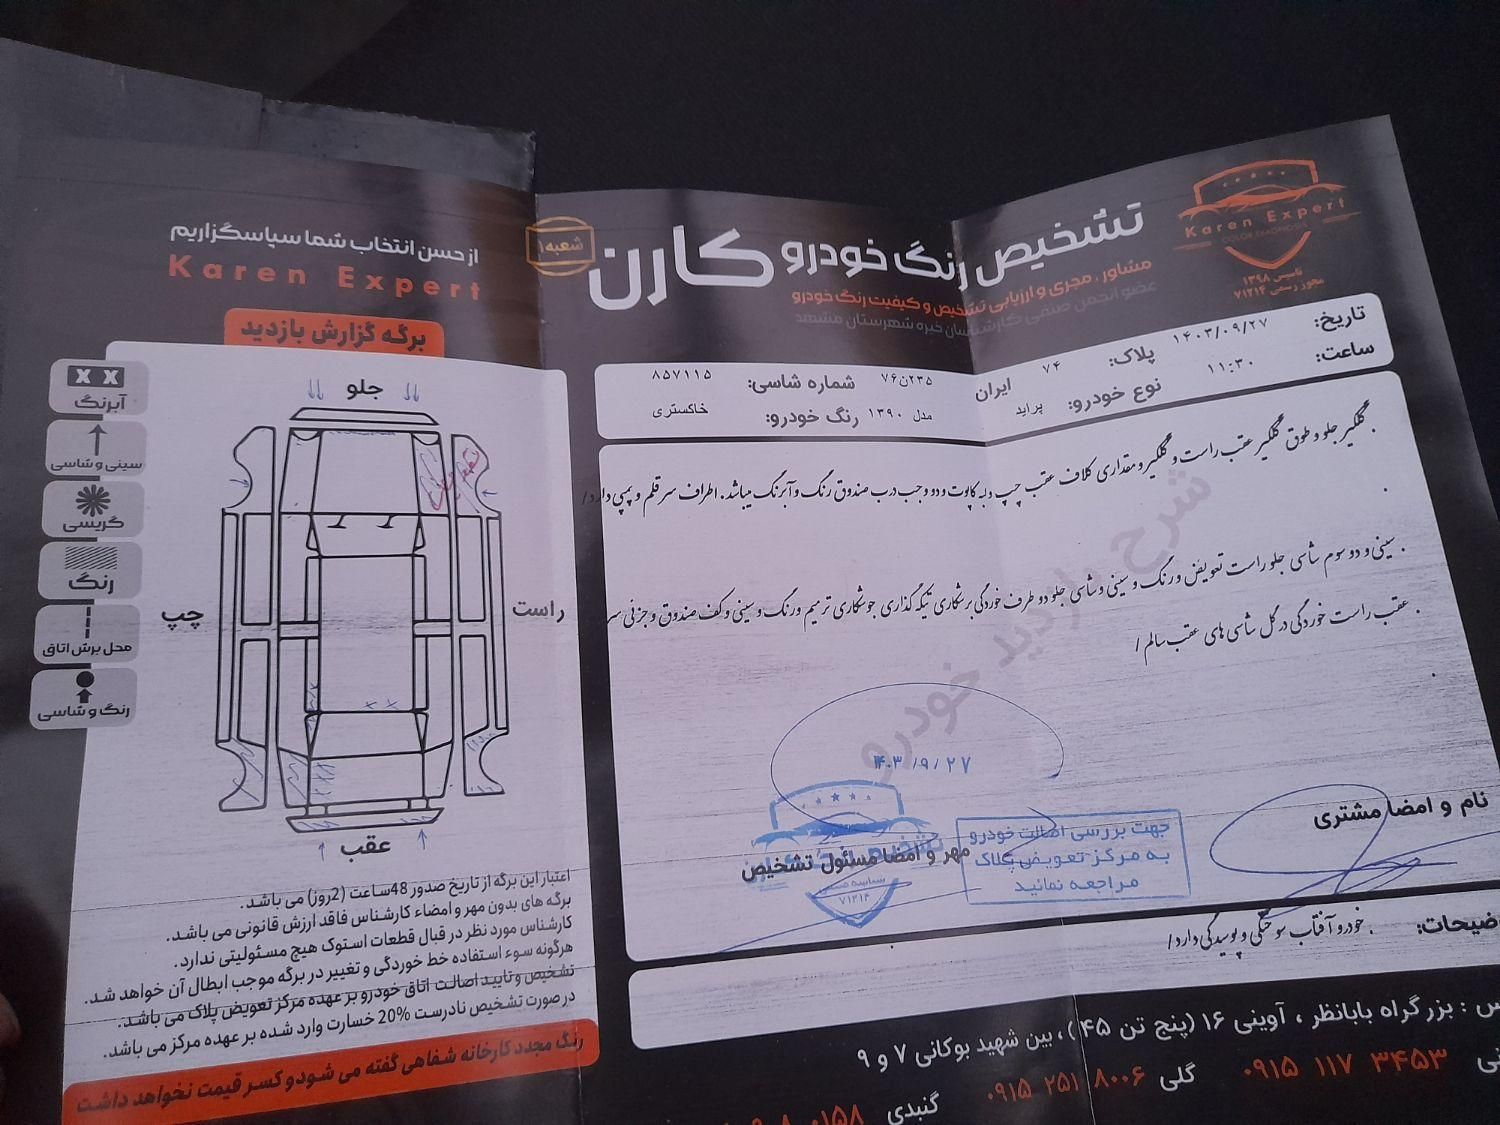 تشخیص رنگ خودرو کارن
شعبه۱
مشاور، مجری و ارزیابی تشخیص و کیفیت رنگ خودرو
عضو انجمن صنفی کارشناسان خبره شهرستان مشهد
Karen Expert
COLOR DIAGNOSIS
تاسیس ۱۳۹۸
مجوز رسمی ۷۱۲۱۴
تاریخ: ۱۴۰۳/۰۹/۲۷ پلاک: ۷۴ ایران ۲۳۵ن۷۶ شماره شاسی: ۸۵۷۱۱۵
ساعت: ۱۱:۳۰ نوع خودرو: پراید مدل ۱۳۹۰ رنگ خودرو: خاکستری
. گلگیر جلو و طوق گلگیر عقب راست و گلگیر و مقداری کلاف عقب چپ و لبه کاپوت و دو وجب درب صندوق رنگ و آبرنگ میباشد. اطراف سر قلم و پمپی دارد/
.
. سینی و دو سوم شاسی جلو راست تعویض و رنگ و سینی و شاسی جلو دو طرف خوردگی برشکاری تیکه گذاری جوشکاری ترمیم و رنگ و سینی و کف صندوق و جزئی سر
. عقب راست خوردگی در گل شاسی های عقب سالم/
.
شرح بازدید خودرو
۱۴۰۳/۹/۲۷
نام و امضا مشتری
مهر و امضا مسئول تشخیص
شناسه صنفی
۷۱۲۱۴
جهت بررسی اصالت خودرو
به مرکز تعویض پلاک
مراجعه نمائید
ضیحات: . خودرو آفتاب سوختگی و پوسیدگی دارد/
س: بزرگراه بابانظر، آوینی ۱۶ (پنج تن ۴۵)، بین شهید بوکانی ۷ و ۹
نی ۰۹۱۵ ۱۱۷ ۳۴۵۳ گلی ۰۹۱۵ ۲۵۱ ۸۰۰۶ گنبدی
از حسن انتخاب شما سپاسگزاریم
Karen Expert
برگه گزارش بازدید
X X
آبرنگ
سینی و شاسی
گریسی
رنگ
محل برش اتاق
رنگ و شاسی
جلو
راست
چپ
عقب
اعتبار این برگه از تاریخ صدور 48ساعت (2روز) می باشد.
برگه های بدون مهر و امضاء کارشناس فاقد ارزش قانونی می باشد.
کارشناس مورد نظر در قبال قطعات استوک هیچ مسئولیتی ندارد.
هرگونه سوء استفاده خط خوردگی و تغییر در برگه موجب ابطال آن خواهد شد.
تشخیص و تایید اصالت اتاق خودرو بر عهده مرکز تعویض پلاک می باشد.
در صورت تشخیص نادرست 20% خسارت وارد شده بر عهده مرکز می باشد.
رنگ مجدد کارخانه شفاهی گفته می شود و کسر قیمت نخواهد داشت